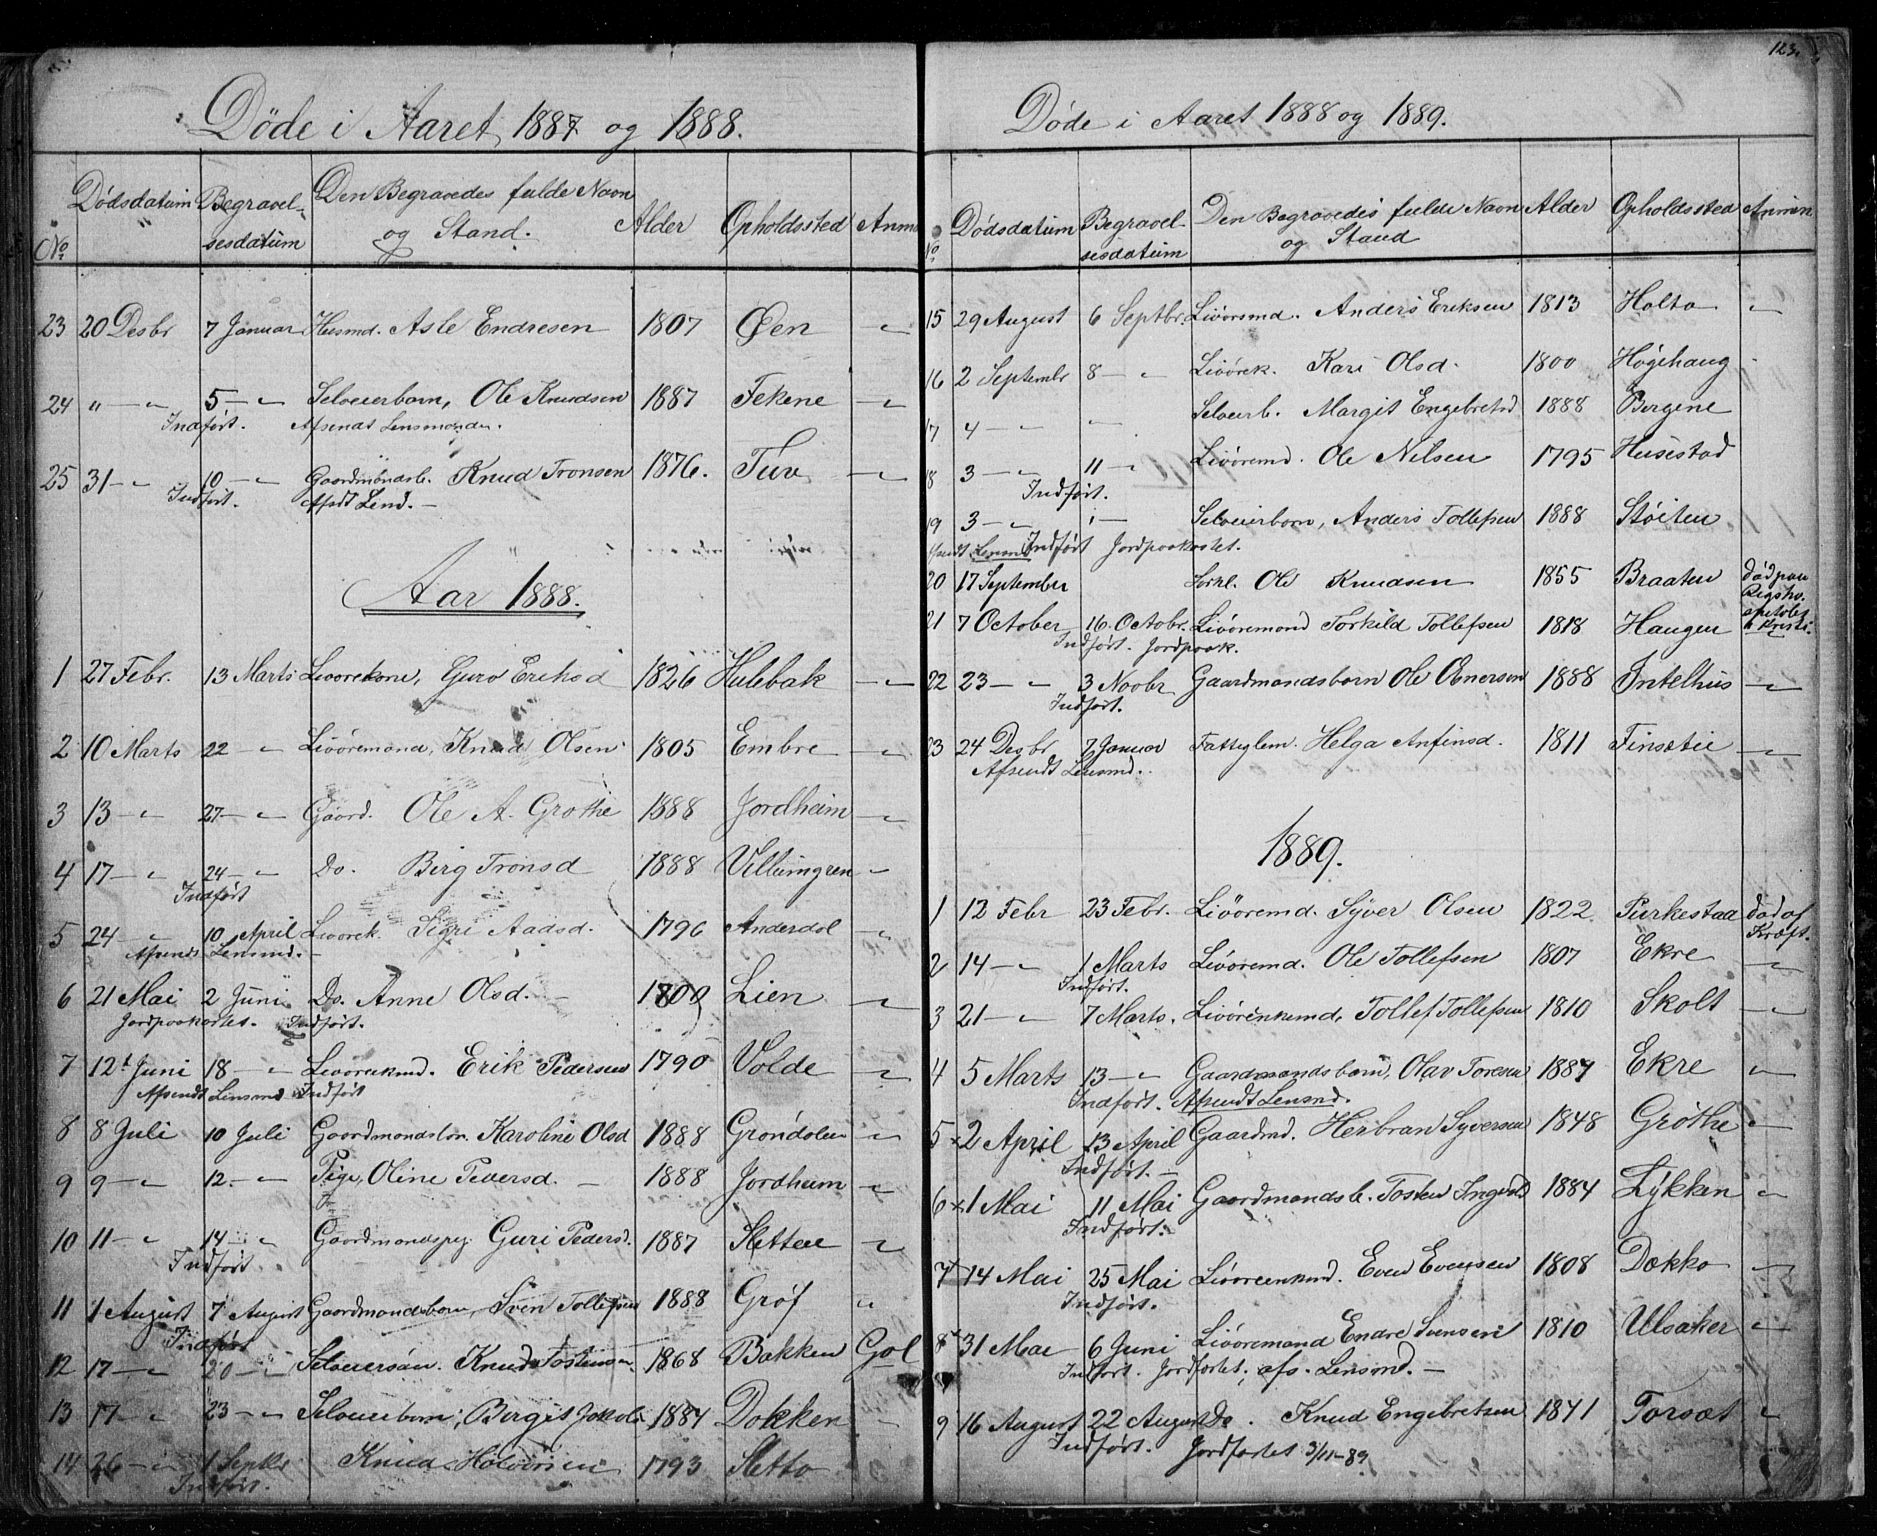 Døde i Aaret 1887 og 1888.
No Dødsdatum Begravelsesdatum Den Begravedes fulde Navn og Stand. Alder Opholdssted Anm
23 20 Desbr 7 Januar Husmd. Asle Endresen 1807 Øen "
24 " — " 5 — " Selveierbarn, Ole Knudsen 1887 Fekene — "
Indført. Afsendt Lensmanden.
25 31 — " 10 — " Gaardmandsb. Knud Tronsen 1876. Tuv — "
Indført. Afsdt Lensd. —
Aar 1888.
1 27 Febr. 13 Marts Livørekone, Guro Eriksd 1826 Hulebak — "
2 10 Marts 22 — " Livøremand, Knud Olsen 1805 Embre "
3 13 — " 27 — " Gaard. Ole A. Grøthe 1888 Jordheim — "
4 17 — " 24 — " Do. Birg Tronsd 1888 Villumgren "
Indført
5 24 — " 10 April Livørek. Sigri Aadsd. 1796 Anderdal "
Afsendt Lensmd. —
6 21 Mai 2 Juni Do. Anne Olsd. — 1800 Lien "
Jordpaakastet. Indført.
7 12 Juni 18 — " Livørenkmd. Erik Pedersen 1790 Volde "
Afsendt Lensmd Indført
8 8 Juli 10 Juli Gaardmandsbn. Karoline Olsd 1888 Grøndalen "
9 9 — " 12. — " Pige, Oline Pedersd. — 1888 Jordheim "
10 11 — " 14 — " Gaardmandspg. Guri Pedersd. 1887 Slettene "
Indført
11 1 August 7 August Gaardmandsbarn, Sven Tollefsen 1888 Grøf "
Indført
12 17 — " 20 — " Selveiersøn. Knud Tostensen 1868 Bakken Gol
13 17 — " 23 — " Selveierbarn, Bergit Jakobsd 1884 Dokken
14 26 — " 1 Septbr Knud 1793 Sletto
Indført.
123.
Døde i Aaret 1888 og 1889.
No Dødsdatum Begravelsesdatum Den Begravedes fulde Navn og Stand Alder Opholdssted Anmn
15 29 August 6 Septbr. Livørsmd. Anders Eriksen 1813 Holto "
16 2 Septembr 8 — " Livørek. Kari Olsd. 1800 Høgehaug
17 4 — " — " Selveierb. Margit Engebretsd 1888 Bergene
18 3 — " 11 — " Livøremd. Ole Nilsen 1795 Husestad
Indført.
19 3 — " — Selveierbarn, Anders Tollefsen 1888 Støiten
Afsendt Lensmd Indført Jordpaakastet.
20 17 September Ole Knudsen 1855 Braaten død paa Rigshospitalet
21 7 October 16. Octobr. Livøremand Torkild Tollefsen 1818 Haugen i Kristi.
Indført. Jordpaak.
22 23 — " 3 Novbr Gaardmandsbarn Ole 1888 Intelhus "
Indført.
23 24 Desbr 7 Januar Fattiglem. Helga Anfinsd. 1811 Finsetlie "
Afsendt Lensmd.
1889.
1 12 Febr 23 Febr. Livøremd. Syver Olsen 1822. Purkestad død af Kræft.
2 14 — " 1 Marts Livøremd. Ole Tollefsen 1807 Ekre "
Indført.
3 21 — " 7 Marts. Livørenkemd, Tollef Tollefsen 1810 Skolt "
4 5 Marts 13 — " Gaardmandsbarn, Olav Toresen 1887 Ekre "
Indført. Afsendt Lensmd.
5 2 April 13 April Gaardmd. Herbran Syversen 1848 Grøthe "
Indført. —
6 1 Mai 11 Mai Gaardmandsb. Tosten 1884 Lykken "
Indført.
7 14 Mai 25 Mai Livørenkmd. Even Evensen 1808 Dokko "
Indført.
8 31 Mai 6 Juni Livøremand Endre Svensen 1810 Ulsaker "
Indført. Jordfæstet, afs. Lensmd. —
9 16 August 22 August Do. Knud Engebretsen 1841 Torsæt "
Indført. Jordfæstet 3/11-89